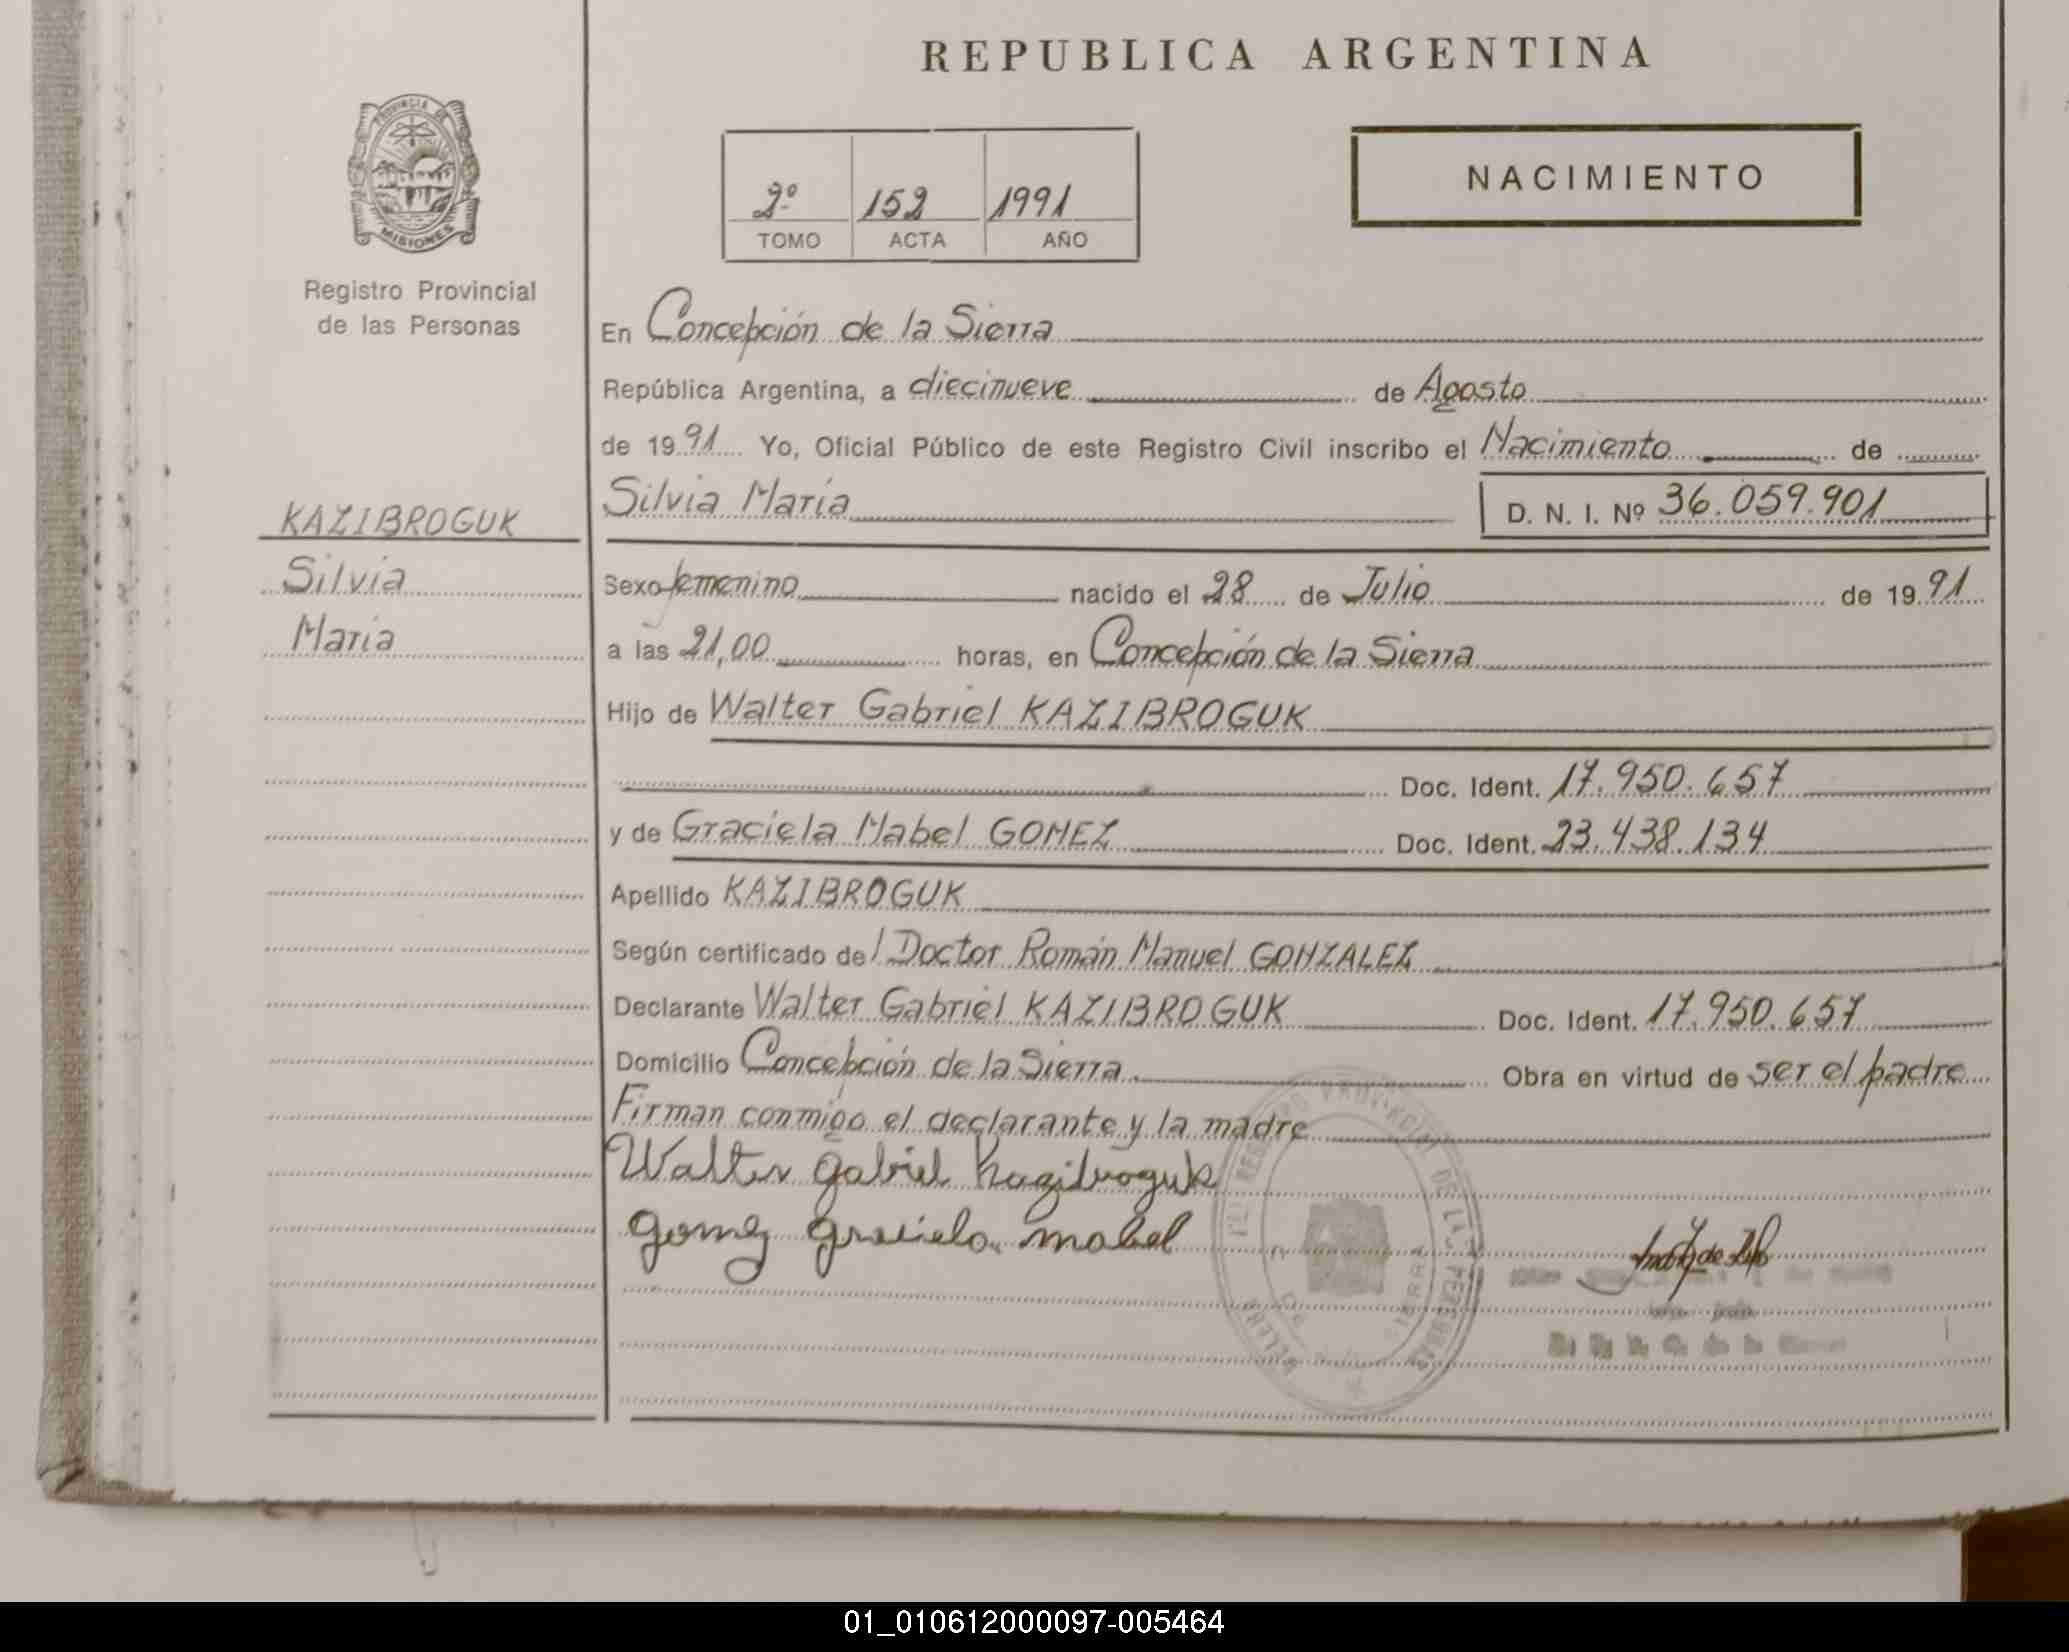 REPUBLICA ARGENTINA
PROVINCIA DE
MISIONES
Registro Provincial
de las Personas
2º 152 1991
TOMO ACTA AÑO
NACIMIENTO
En Concepción de la Sierra
República Argentina, a diecinueve de Agosto
de 1991 Yo, Oficial Público de este Registro Civil inscribo el Nacimiento de
Silvia María D. N. I. Nº 36.059.901
KAZIBROGUK
Silvia
María
Sexo femenino nacido el 28 de Julio de 1991
a las 21,00 horas, en Concepción de la Sierra
Hijo de Walter Gabriel KAZIBROGUK
Doc. Ident. 17.950.657
y de Graciela Mabel GOMEZ Doc. Ident. 23.438.134
Apellido KAZIBROGUK
Según certificado del Doctor Román Manuel GONZALEZ
Declarante Walter Gabriel KAZIBROGUK Doc. Ident. 17.950.657
Domicilio Concepción de la Sierra. Obra en virtud de ser el padre
Firman conmigo el declarante y la madre
Walter Gabriel Kazibroguk
Gomez Graciela Mabel
REGISTRO PROVINCIAL DE LAS PERSONAS
SIERRA
01_010612000097-005464